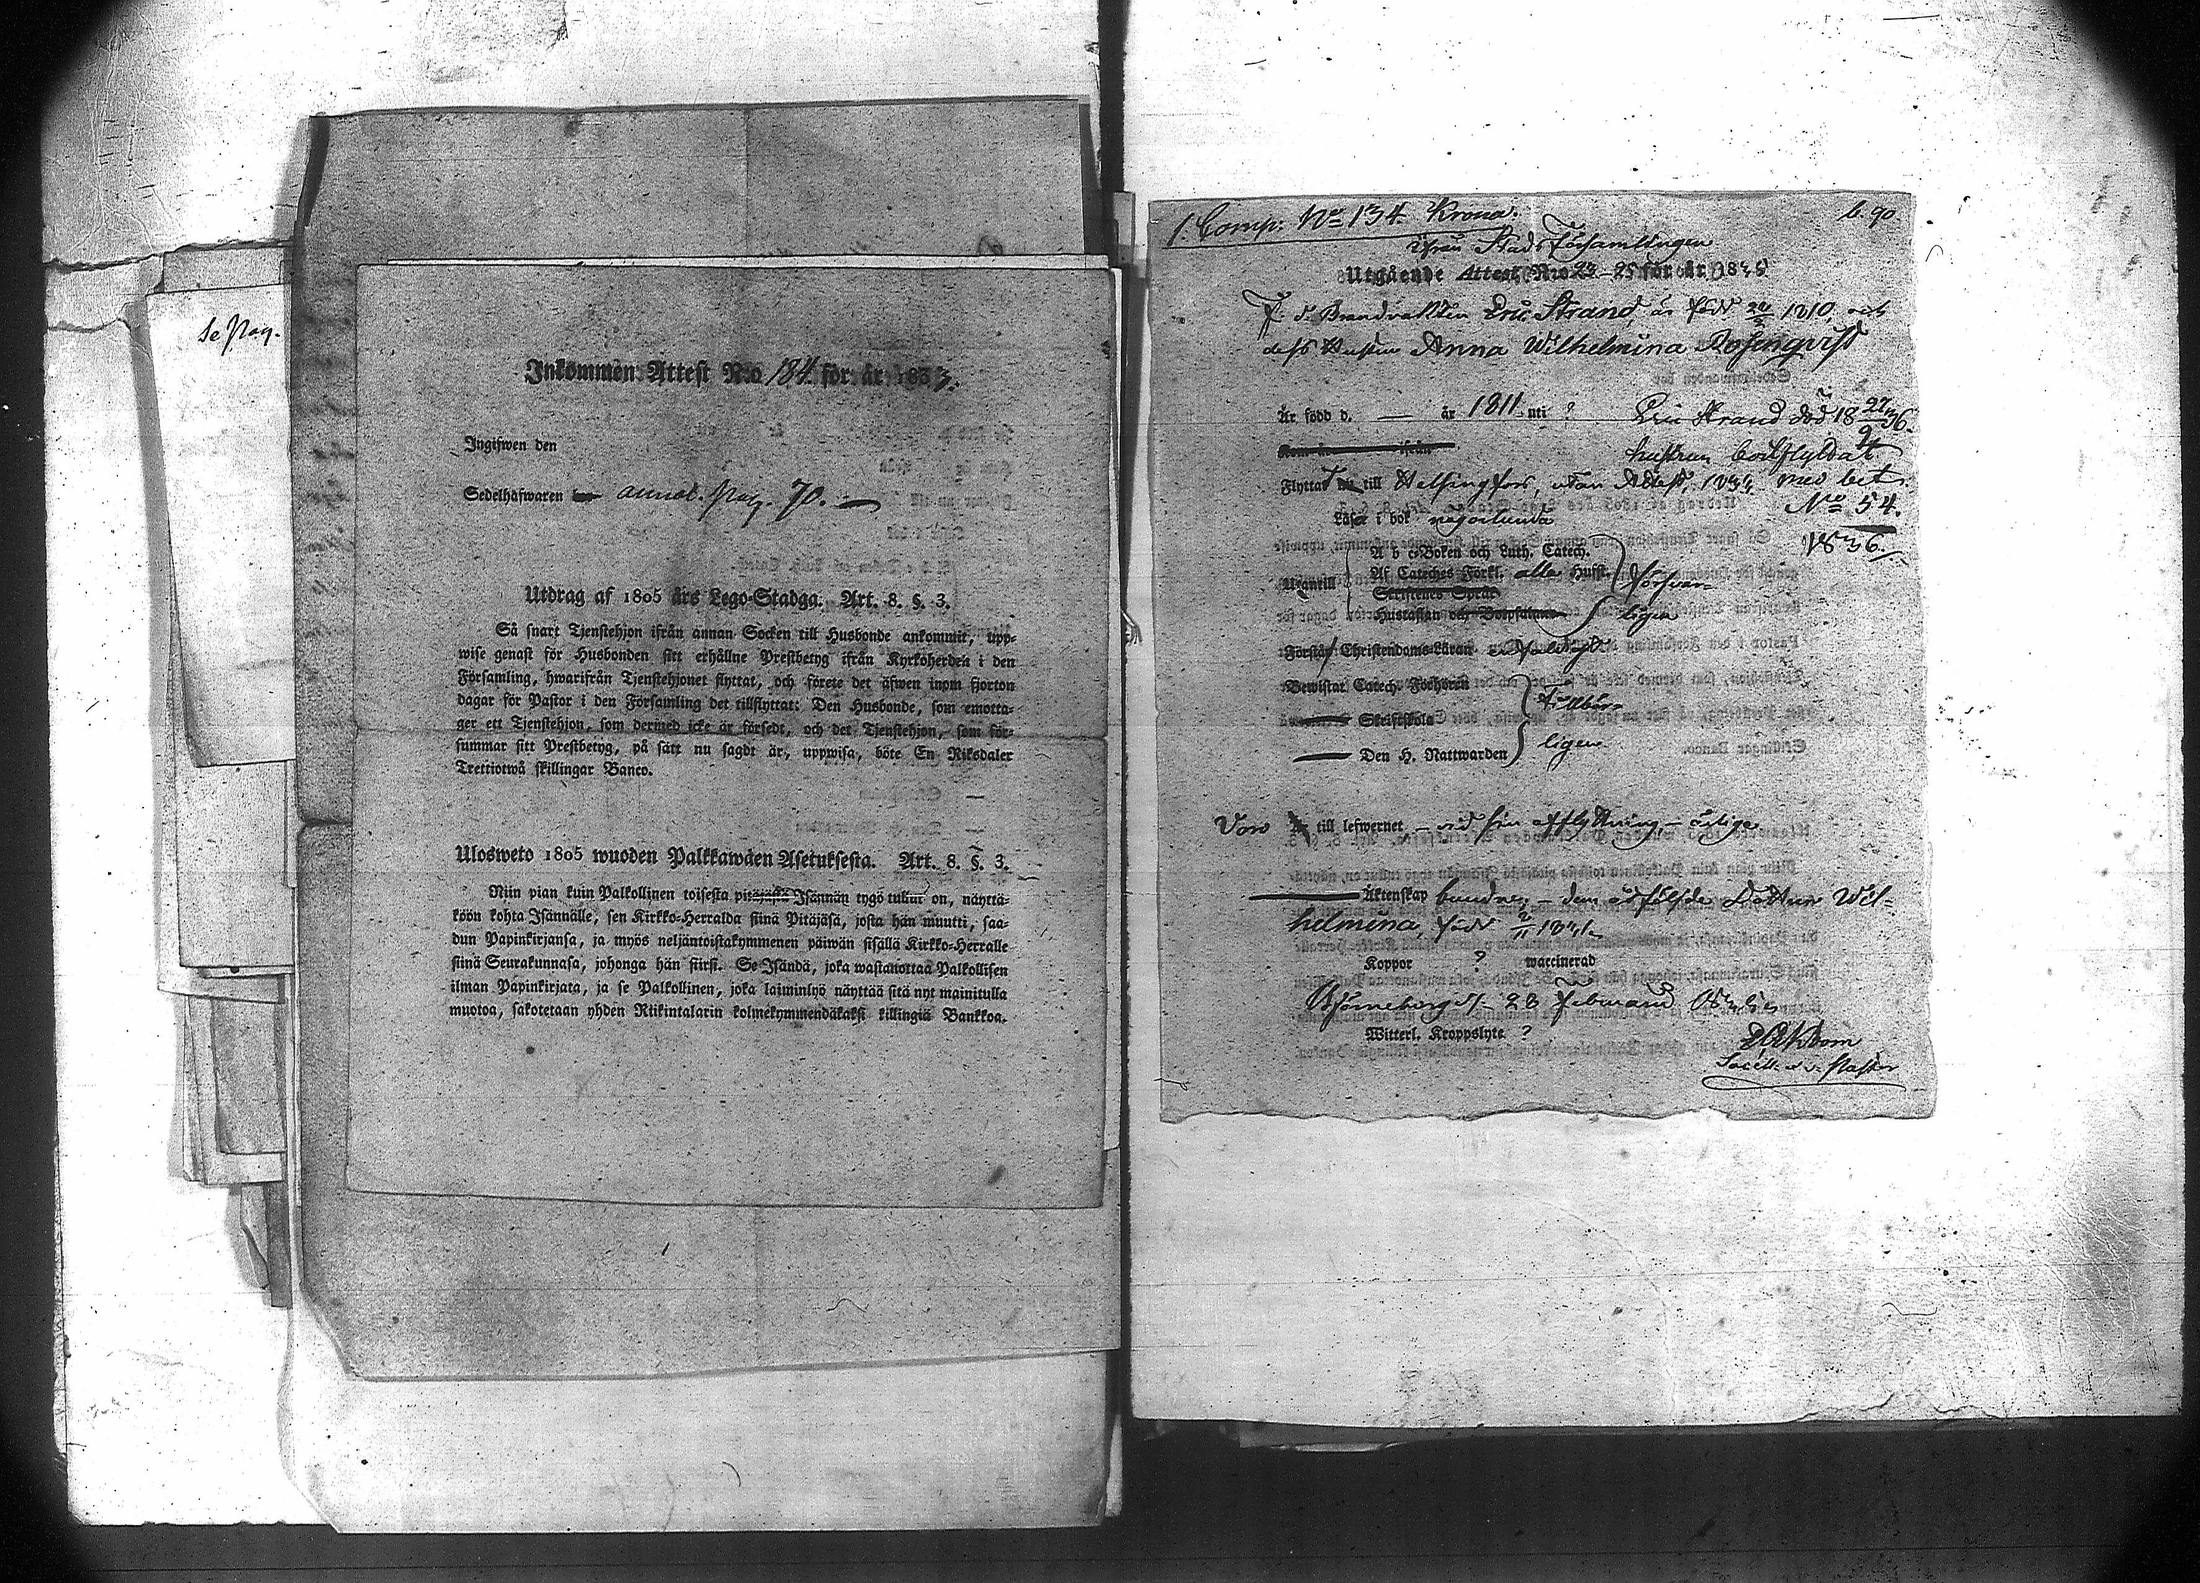 Se Pag.
Inkommen Attest N:o 184 för år 1833.
Ingifwen den
Sedelhafwaren annot. Pag. 70.
Utdrag af 1805 års Lego-Stadga. Art. 8. §. 3.
Så snart Tjenstehjon ifrån annan Socken till Husbonde ankommit, upp-
wise genast för Husbonden sitt erhållne Prestbetyg ifrån Kyrkoherden i den
Församling, hwarifrån Tjenstehjonet flyttat, och förete det äfwen inom fjorton
dagar för Pastor i den Församling det tillflyttat: Den Husbonde, som emotta-
ger ett Tjenstehjon, som dermed icke är försedt, och det Tjenstehjon, som för-
summar sitt Prestbetyg, på sätt nu sagdt är, uppwisa, böte En Riksdaler
Trettiotwå skillingar Banco.
Ulosweto 1805 wuoden Palkkawäen Asetuksesta. Art. 8. §. 3.
Niin pian kuin Palkollinen toisesta pitäjästä Isännän tygö tullut on, näyttä-
köön kohta Isännälle, sen Kirkko-Herralda siinä Pitäjäsä, josta hän muutti, saa-
dun Papinkirjansa, ja myös neljäntoistakymmenen päiwän sisällä Kirkko-Herralle
siinä Seurakunnasa, johonga hän siirsi. Se Isändä, joka wastanottaa Palkollisen
ilman Papinkirjata, ja se Palkollinen, joka laiminlyö näyttää sitä nyt mainitulla
muotoa, sakotetaan yhden Riikintalarin kolmekymmendäkaksi killingiä Bankkoa.
1. Comp: No 134. Krona. b. 90
ifrån Stads Församlingen
Utgående Attest N:o 24-25 för år 1835
F. d. Brandvakten Eric Strand, är född 1810, och
dess Hustru Anna Wilhelmina Rosenqvist
Är född d. — år 1811 uti ? Eric Strand död 1836.
Kom år ifrån hustrun
Flyttat till Helsingfors, utan Attest, med bet.
No 54.
Läser i bok någorlunda 1836.
A b c-Boken och Luth. Catech.
Utantill Af Cateches Förkl. alla Hufst. försvar-
Skriftenes Språk
Hustaflan och Botpsalmer ligen
Förstår Christendoms-Läran
Bewistat Catech. Förhören tillbör-
Skriftskola
Den H. Nattwarden ligen
Vore till lefwernet, – vid sin afflyttning, – ärlige
Äktenskap bundne, – dem åtföljde Dottren Wil-
helmina, född
Koppor ? waccinerad
Björneborg d. 28 Februarii 1835
Witterl. Kroppslyte ?
Pastor